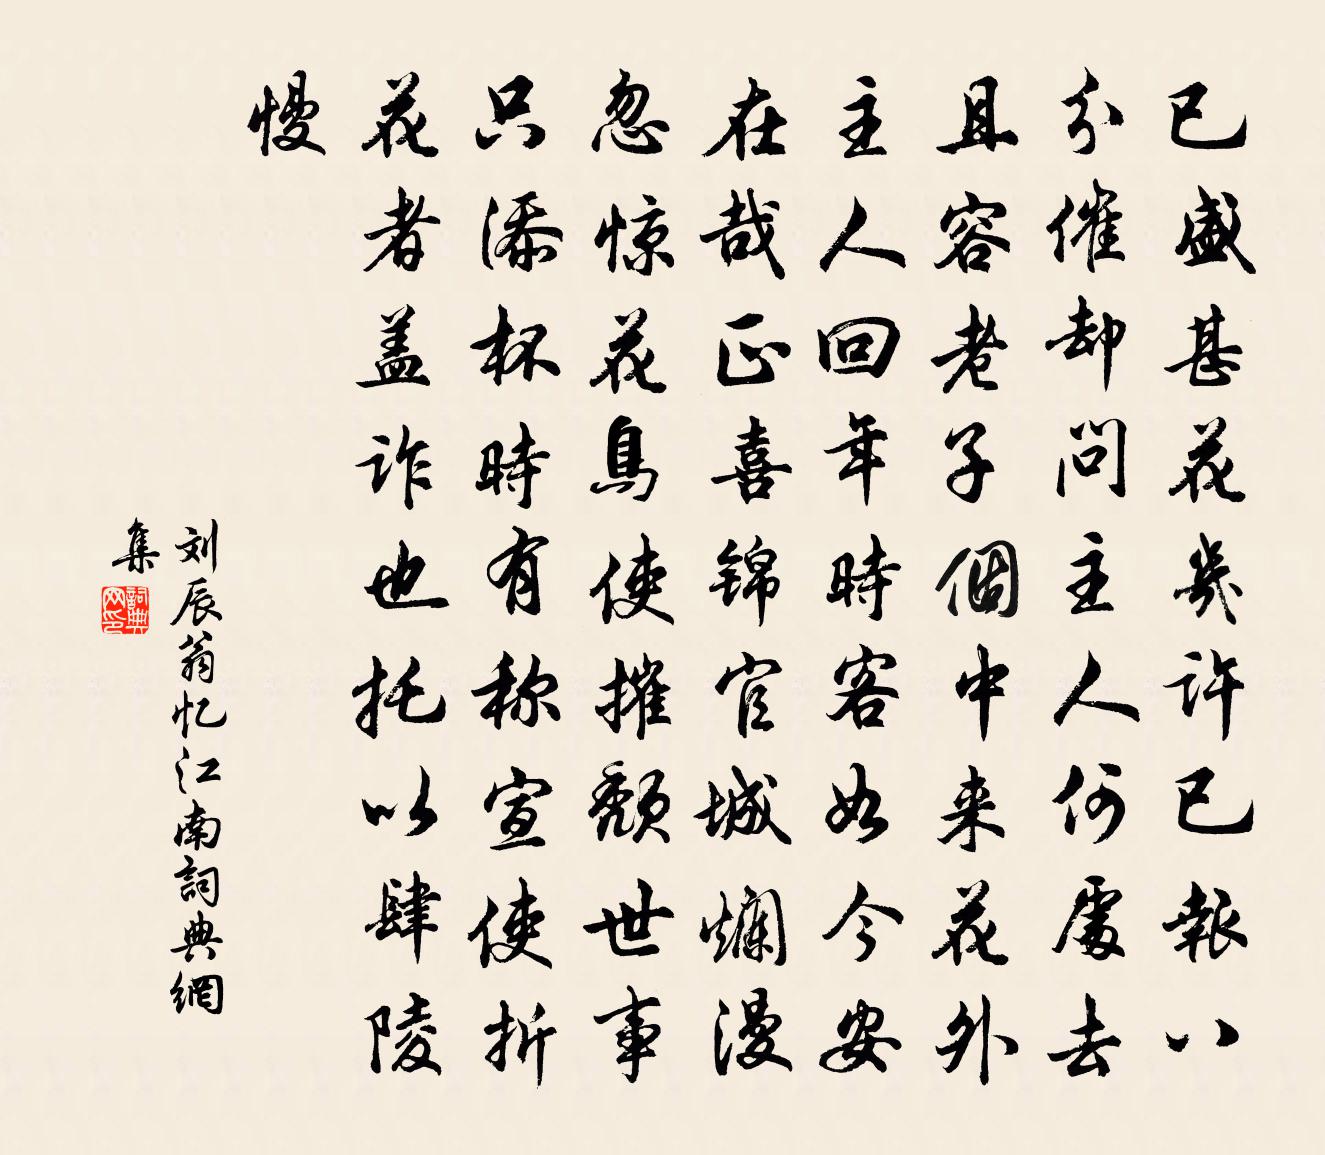 已盛甚花幾許已報八
分催却問主人何處去
且容老子個中来花外
主人回年時客如今安
在哉正喜锦官城爛漫
忽惊花鳥使摧頹世事
只添杯時有称宣使折
花者盖诈也托以肆陵
慢
刘辰翁忆江南詞典網
集
詞典网印